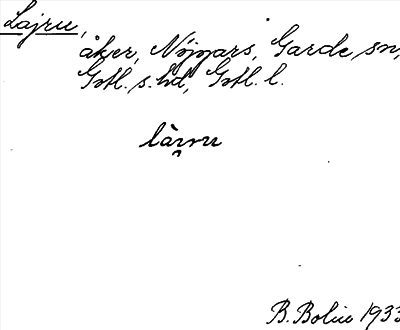 Lajru,
åker, Nöjgars, Garde sn,
Gotl. s. hd, Gotl. l.
lài̯ru
B. Bolin 1933